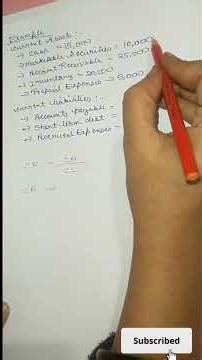 Example
Current Assets :-
→ Cash = 15,000
→ Marketable Securities = 10,000
→ Account Receivable = 25,000
→ Inventory = 20,000
→ Prepaid Expenses → 5,000
Current Liabilities :-
→ Accounts payable =
→ Short term debt =
→ Accrued Expenses =
Subscribed